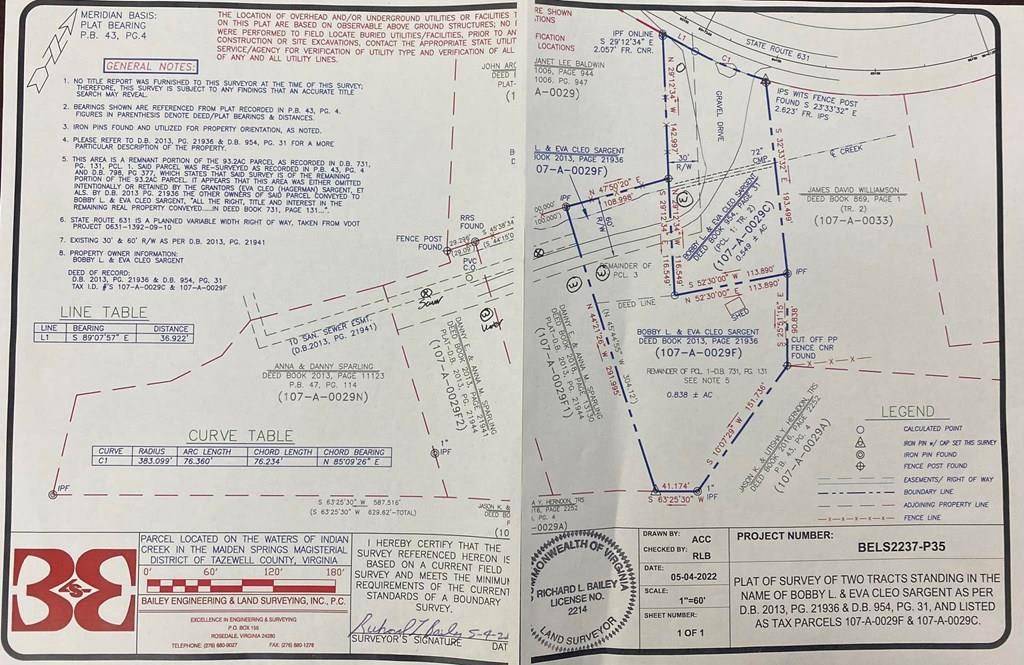 MERIDIAN BASIS:
PLAT BEARING
P.B. 43, PG.4
THE LOCATION OF OVERHEAD AND/OR UNDERGROUND UTILITIES OR FACILITIES
ON THIS PLAT ARE BASED ON OBSERVABLE ABOVE GROUND STRUCTURES;
WERE PERFORMED TO FIELD LOCATE BURIED UTILITIES/FACILITIES, PRIOR TO
CONSTRUCTION OR SITE EXCAVATIONS, CONTACT THE APPROPRIATE STATE
SERVICE/AGENCY FOR VERIFICATION OF UTILITY TYPE AND VERIFICATION OF
OF ANY AND ALL UTILITY LINES.
GENERAL NOTES:
1. NO TITLE REPORT WAS FURNISHED TO THIS SURVEYOR AT THE TIME OF THIS SURVEY;
THEREFORE, THIS SURVEY IS SUBJECT TO ANY FINDINGS THAT AN ACCURATE TITLE
SEARCH MAY REVEAL.
2. BEARINGS SHOWN ARE REFERENCED FROM PLAT RECORDED IN P.B. 43, PG. 4.
FIGURES IN PARENTHESIS DENOTE DEED/PLAT BEARINGS & DISTANCES.
3. IRON PINS FOUND AND UTILIZED FOR PROPERTY ORIENTATION, AS NOTED.
4. PLEASE REFER TO D.B. 2013, PG. 21936 & D.B. 954, PG. 31 FOR A MORE
PARTICULAR DESCRIPTION OF THE PROPERTY.
5. THIS AREA IS A REMNANT PORTION OF THE 93.2AC PARCEL AS RECORDED IN D.B. 731,
PG. 131, PCL. 1. SAID PARCEL WAS RE-SURVEYED AS RECORDED IN P.B. 43, PG. 4
AND D.B. 798, PG 377, WHICH STATES THAT SAID SURVEY IS OF THE REMAINING
PORTION OF THE 93.2AC PARCEL. IT APPEARS THAT THIS AREA WAS EITHER OMITTED
INTENTIONALLY OR RETAINED BY THE GRANTORS (EVA (HAGERMAN) SARGENT, ET
ALS. BY D.B. 2013 PG. 21936 THE OTHER OWNERS OF SAID PARCEL CONVEYED TO
BOBBY L. & EVA CLEO SARGENT, "ALL THE RIGHT, TITLE AND INTEREST IN THE
REMAINING REAL PROPERTY CONVEYED.....IN DEED BOOK 731, PAGE 131...".
6. STATE ROUTE 631 IS A PLANNED VARIABLE WIDTH RIGHT OF WAY, TAKEN FROM VDOT
PROJECT 0631-1392-09-10
7. EXISTING 30' & 60' R/W AS PER D.B. 2013, PG. 21941
8. PROPERTY OWNER INFORMATION:
BOBBY L. & EVA CLEO SARGENT
DEED OF RECORD:
D.B. 2013, PG. 21936 & D.B. 954, PG. 31
TAX I.D. #'S 107-A-0029C & 107-A-0029F
LINE TABLE
LINE BEARING DISTANCE
L1 S 89°07'57" E 36.922'
FENCE POST
FOUND
RRS
FOUND
PVC
C.O.
10' SAN. SEWER ESMT.
(D.B.2013, PG. 21941)
ANNA & DANNY SPARLING
DEED BOOK 2013, PAGE 11123
P.B. 47, PG. 114
(107-A-0029N)
DANNY E. & ANNA M. SPARLING
DEED BOOK 2013, PAGE 21941
PLAT-D.B. 2013, PG. 21944
(107-A-0029F2)
CURVE TABLE
CURVE RADIUS ARC LENGTH CHORD LENGTH CHORD BEARING
C1 383.099' 76.360' 76.234' N 85°09'26" E
IPF
1" IPF
S 63°25'30" W 587.516'
(S 63°25'30" W 629.62'-TOTAL)
RE SHOWN
IPF ONLINE
S 29°12'34" E
2.057' FR. CNR.
L1
C1
STATE ROUTE 631
JANET LEE BALDWIN
1006, PAGE 944
1006, PG. 947
A-0029)
GRAVEL DRIVE
IPS WITS FENCE POST
FOUND S 23°33'32" E
2.623' FR. IPS
N 29°12'34" W 142.997'
30'
R/W
72"
CMP
℄ CREEK
S 32°33'32" E 93.499'
L. & EVA CLEO SARGENT
BOOK 2013, PAGE 21936
07-A-0029F)
N 47°50'20" E
108.998'
60'
R/W
BOBBY L. & EVA CLEO SARGENT
DEED BOOK 954, PAGE 31
(PCL. 1; TR. 2)
(107-A-0029C)
0.549 ± AC
JAMES DAVID WILLIAMSON
DEED BOOK 869, PAGE 1
(TR. 2)
(107-A-0033)
116.549'
REMAINDER OF
PCL 3
DEED LINE
S 52°30'00" W 113.890'
N 52°30'00" E 113.890'
IPF
SHED
S 25°51'15" E
90.838'
BOBBY L. & EVA CLEO SARGENT
DEED BOOK 2013, PAGE 21936
(107-A-0029F)
REMAINDER OF PCL 1-D.B. 731, PG. 131
SEE NOTE 5
0.838 ± AC
CUT OFF PP
FENCE CNR
FOUND
N 44°21'26" W 291.995'
(N 45°44'55" W 304.12')
DANNY E. & ANNA M. SPARLING
(107-A-0029F1)
S 10°07'29" W 151.736'
JASON K. & LITISHA Y. HERNDON, TRS
DEED BOOK 2016, PAGE 2252
P.B. 43, PG. 4
(107-A-0029A)
41.174'
S 63°25'30" W
1" IPF
LEGEND
CALCULATED POINT
IRON PIN w/ CAP SET THIS SURVEY
IRON PIN FOUND
FENCE POST FOUND
EASEMENTS/ RIGHT OF WAY
BOUNDARY LINE
ADJOINING PROPERTY LINE
FENCE LINE
PARCEL LOCATED ON THE WATERS OF INDIAN
CREEK IN THE MAIDEN SPRINGS MAGISTERIAL
DISTRICT OF TAZEWELL COUNTY, VIRGINIA
0' 60' 120' 180'
BAILEY ENGINEERING & LAND SURVEYING, INC., P.C.
EXCELLENCE IN ENGINEERING & SURVEYING
P.O. BOX 155
ROSEDALE, VIRGINIA 24280
TELEPHONE: (276) 880-9027 FAX: (276) 880-1276
I HEREBY CERTIFY THAT THE
SURVEY REFERENCED HEREON IS
BASED ON A CURRENT FIELD
SURVEY AND MEETS THE MINIMUM
REQUIREMENTS OF THE CURRENT
STANDARDS OF A BOUNDARY
SURVEY.
Richard L Bailey
SURVEYOR'S SIGNATURE
RICHARD L. BAILEY
LICENSE NO.
2214
LAND SURVEYOR
DRAWN BY: ACC
CHECKED BY: RLB
DATE:
05-04-2022
SCALE:
1"=60'
SHEET NUMBER:
1 OF 1
PROJECT NUMBER:
BELS2237-P35
PLAT OF SURVEY OF TWO TRACTS STANDING IN THE
NAME OF BOBBY L. & EVA CLEO SARGENT AS PER
D.B. 2013, PG. 21936 & D.B. 954, PG. 31, AND LISTED
AS TAX PARCELS 107-A-0029F & 107-A-0029C.